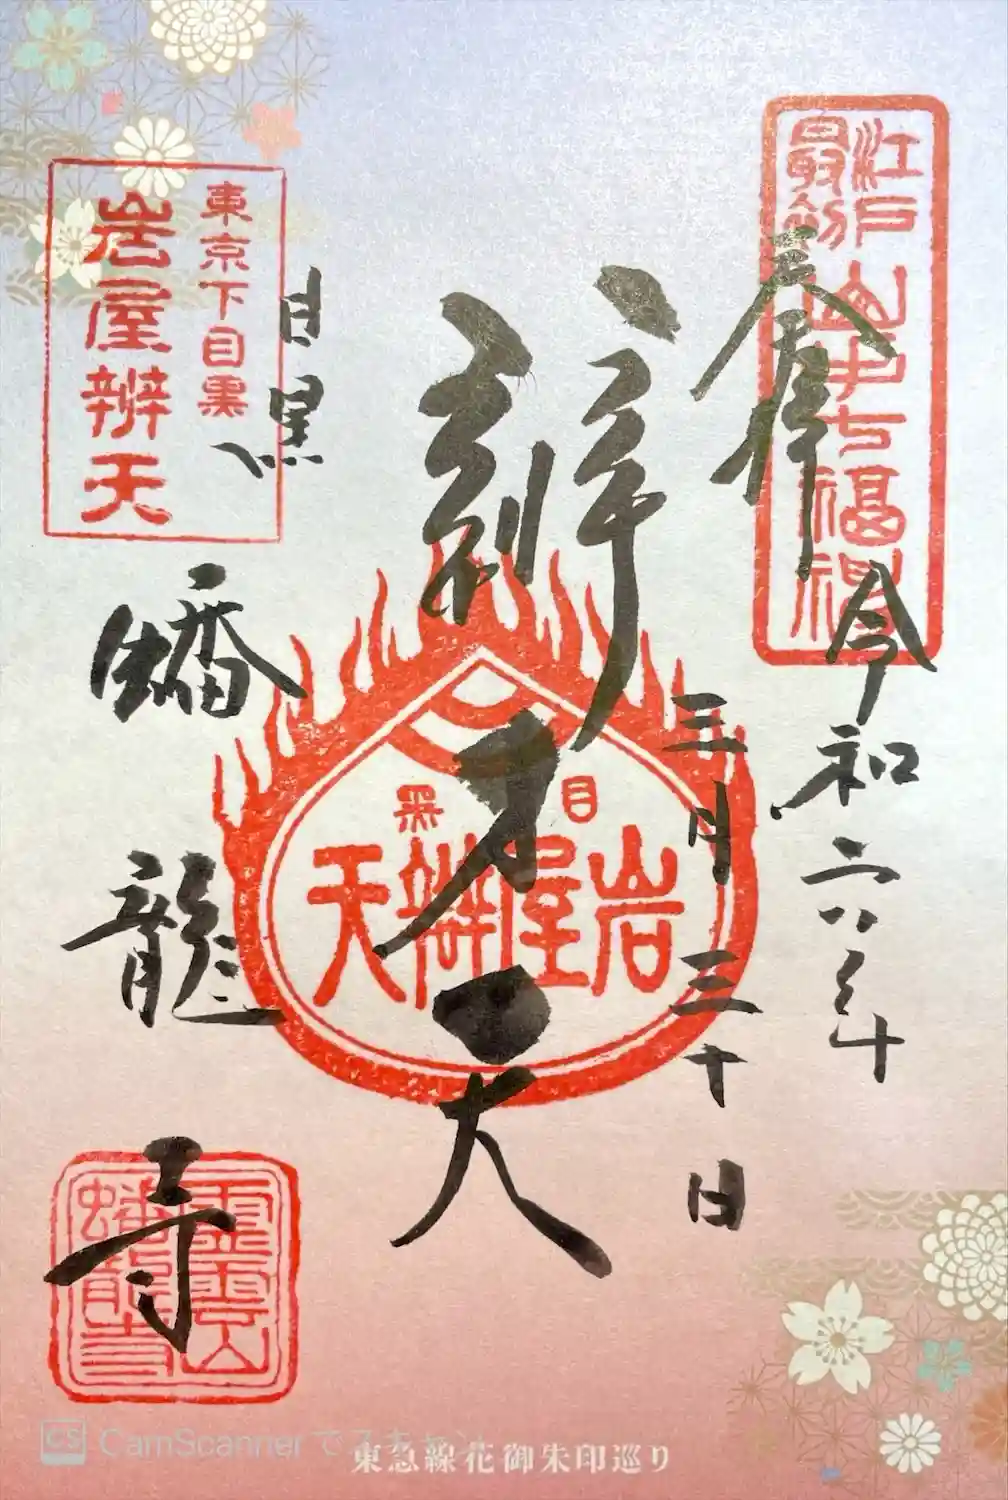 江戸
最初
山手七福神
奉拝
令和六年
三月三十日
辨才天
目黒
岩屋辨天
東京下目黒
岩屋辨天
目黒
蟠龍寺
霊雲山
蟠龍寺
東急線花御朱印巡り
CS CamScanner でスキャン